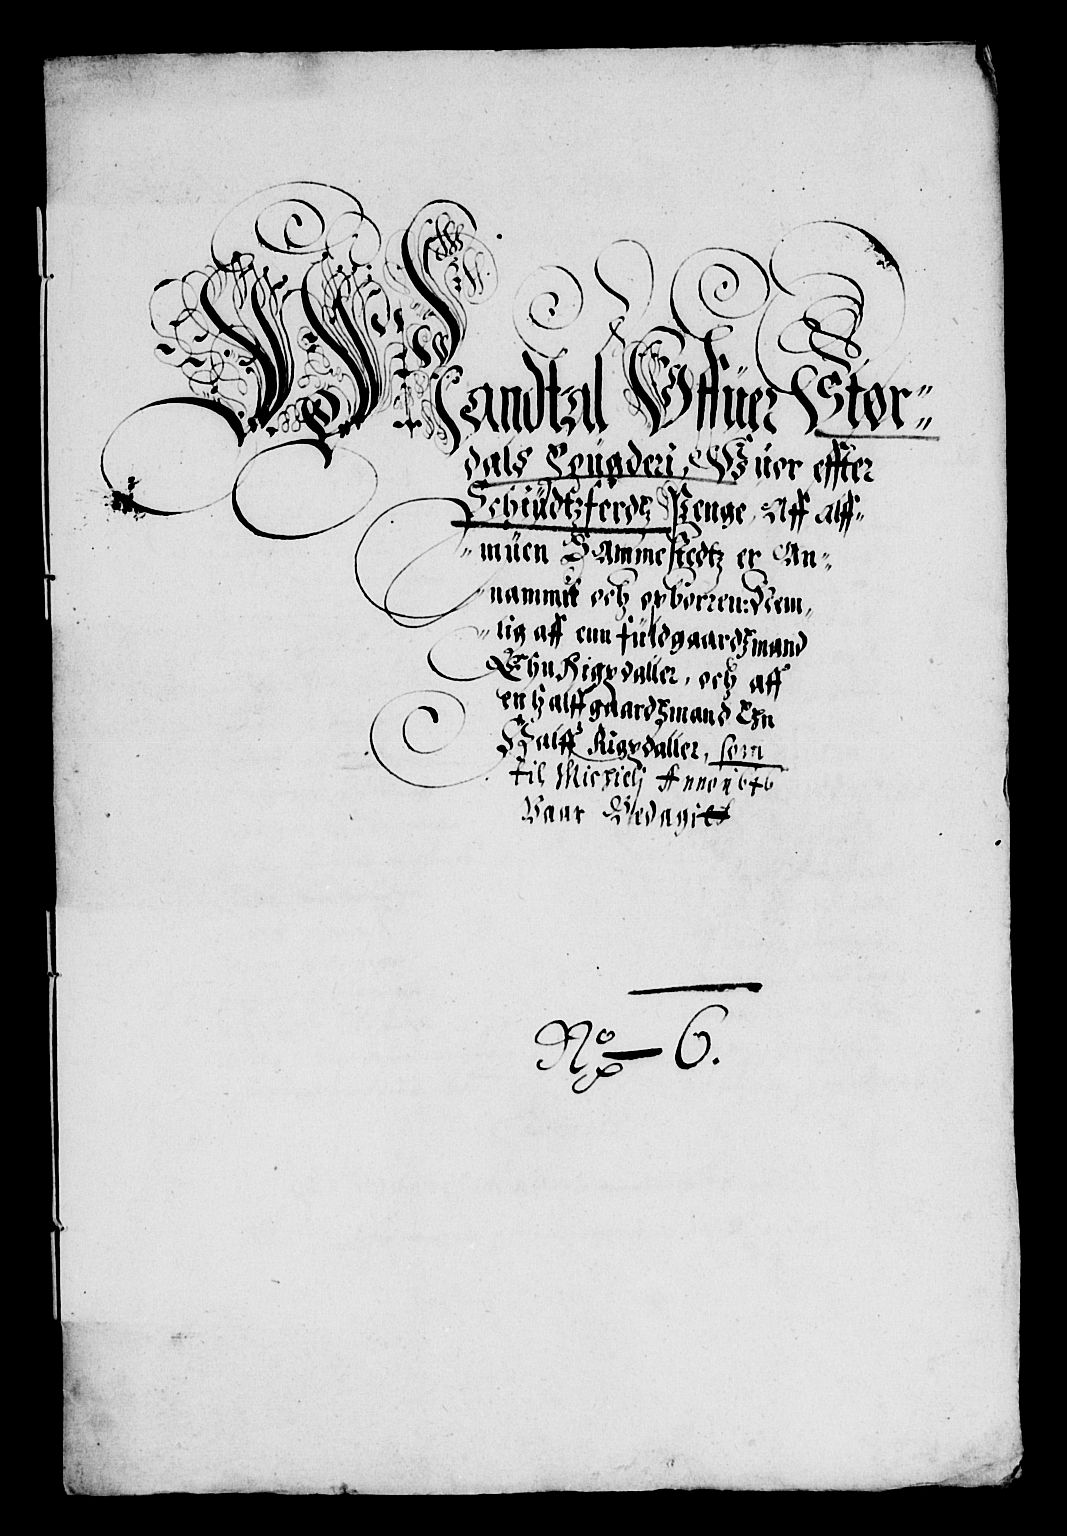 Mandtal Offuer Stør-
dals Lougderi, Huor effter
Schiüdtzferdtz Penge, Aff Alff-
müen Sammestedtz er An-
nammit och opborren: Nem-
lig aff enn füldgaardtzmand
Ehn Rigxdaller, och aff
en halff gaardtzmand Ehn
Halff Rigxdaller, som
til Michelj Anno 1646
Vaar Bedagit
No 6.